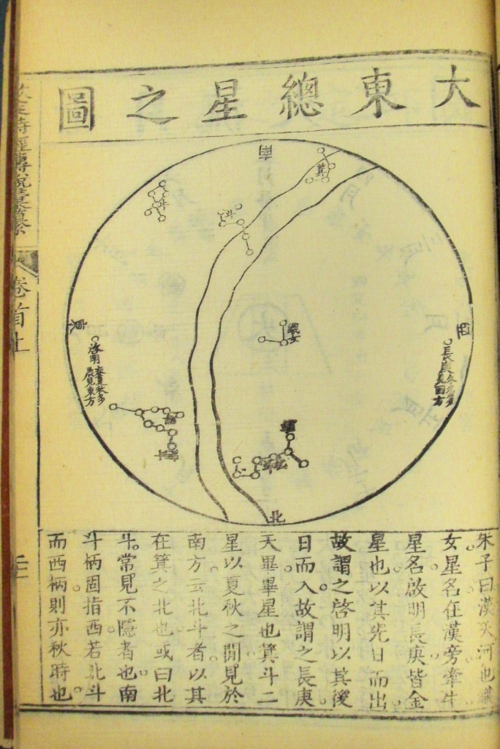 大東總星之圖
南
箕
斗
東
西
織女
啓明
見東方
長庚
西方
北
朱子曰漢天河也織
女星名在漢旁牽牛
星名啟明長庚皆金
星也以其先日而出
故謂之啓明以其後
日而入故謂之長庚
天畢畢星也箕斗二
星以夏秋之間見於
南方云北斗者以其
在箕之北也或曰北
斗常見不隱者也南
斗柄固指西若北斗
而西柄則亦秋時也
詩經傳說彙纂
卷首上